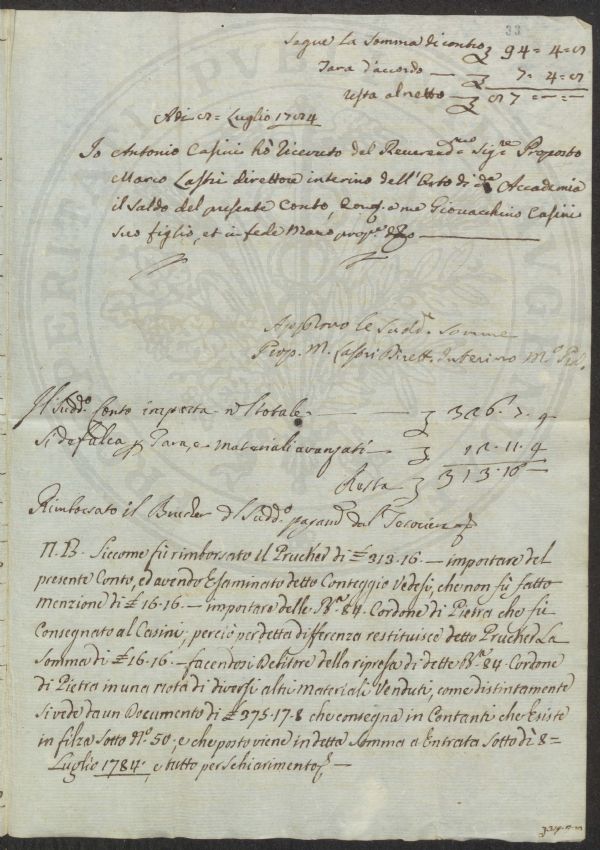 33
Segue La Somma di contro 94 = 4 = 8
Tara d'accordo — 7 = 4 = 8
resta al netto — 87 = — = —
Adi 8 = Luglio 1784
Io Antonio Casini hò ricevuto del Reverend.mo Sig.re Proposto
Marco Lastri direttore interino dell'Orto di d.a Accademia
il saldo del presente Conto, e me Giovacchino Casini
suo figlio, et in fede Mano prop.a
Approvo le Sudd.e Somme
Prop. M. Lastri Dirett. Interino M.o P.
Il Sudd.o Conto importa in totale — 326. 7. 9
Si defalca p Tara, e materiali avanzati — 12. 11. 9
Resta 313. 16 —
Rimborsato il Prucher del Sudd.o
N.B. Siccome fù rimborsato il Prucher di £ 313. 16. — importare del
presente Conto, ed avendo Esaminato detto Conteggio Vedesi, che non fù fatto
menzione di £ 16. 16. — importare delle B.a 84. Cordone di Pietra che fù
Consegnato al Casini; perciò per detta differenza restituisce detto Prucher La
Somma di £ 16. 16. — facendosi Debitore della ripresa di dette B.a 84 Cordone
di Pietra in una nota di diversi altri Materiali Venduti, come distintamente
si vede da un Documento di £ 375. 17. 8 che consegna in Contanti che Esiste
in filza Sotto N.o 50; e che posto viene in detta Somma a Entrata Sotto dì 8 =
Luglio 1784. e tutto per schiarimento —